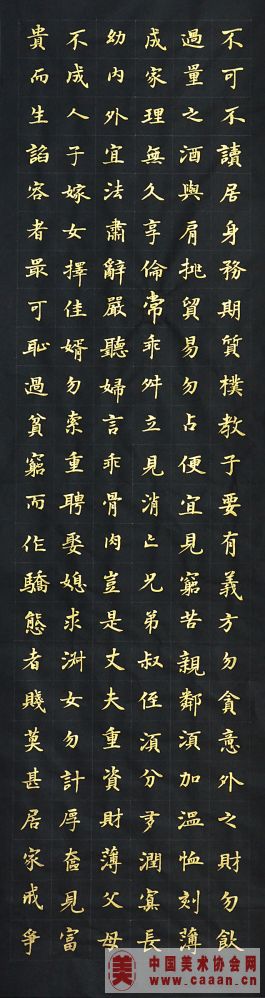 不可不讀居身務期質樸教子要有義方勿貪意外之財勿飲
過量之酒與肩挑貿易勿占便宜見窮苦親鄰須加溫恤刻薄
成家理無久享倫常乖舛立見消亡兄弟叔侄須分多潤寡長
幼內外宜法肅辭嚴聽婦言乖骨肉豈是丈夫重資財薄父母
不成人子嫁女擇佳婿勿索重聘娶媳求淑女勿計厚奩見富
貴而生諂容者最可恥過貧窮而作驕態者賤莫甚居家戒爭
美
中国美术协会网
www.caaan.cn